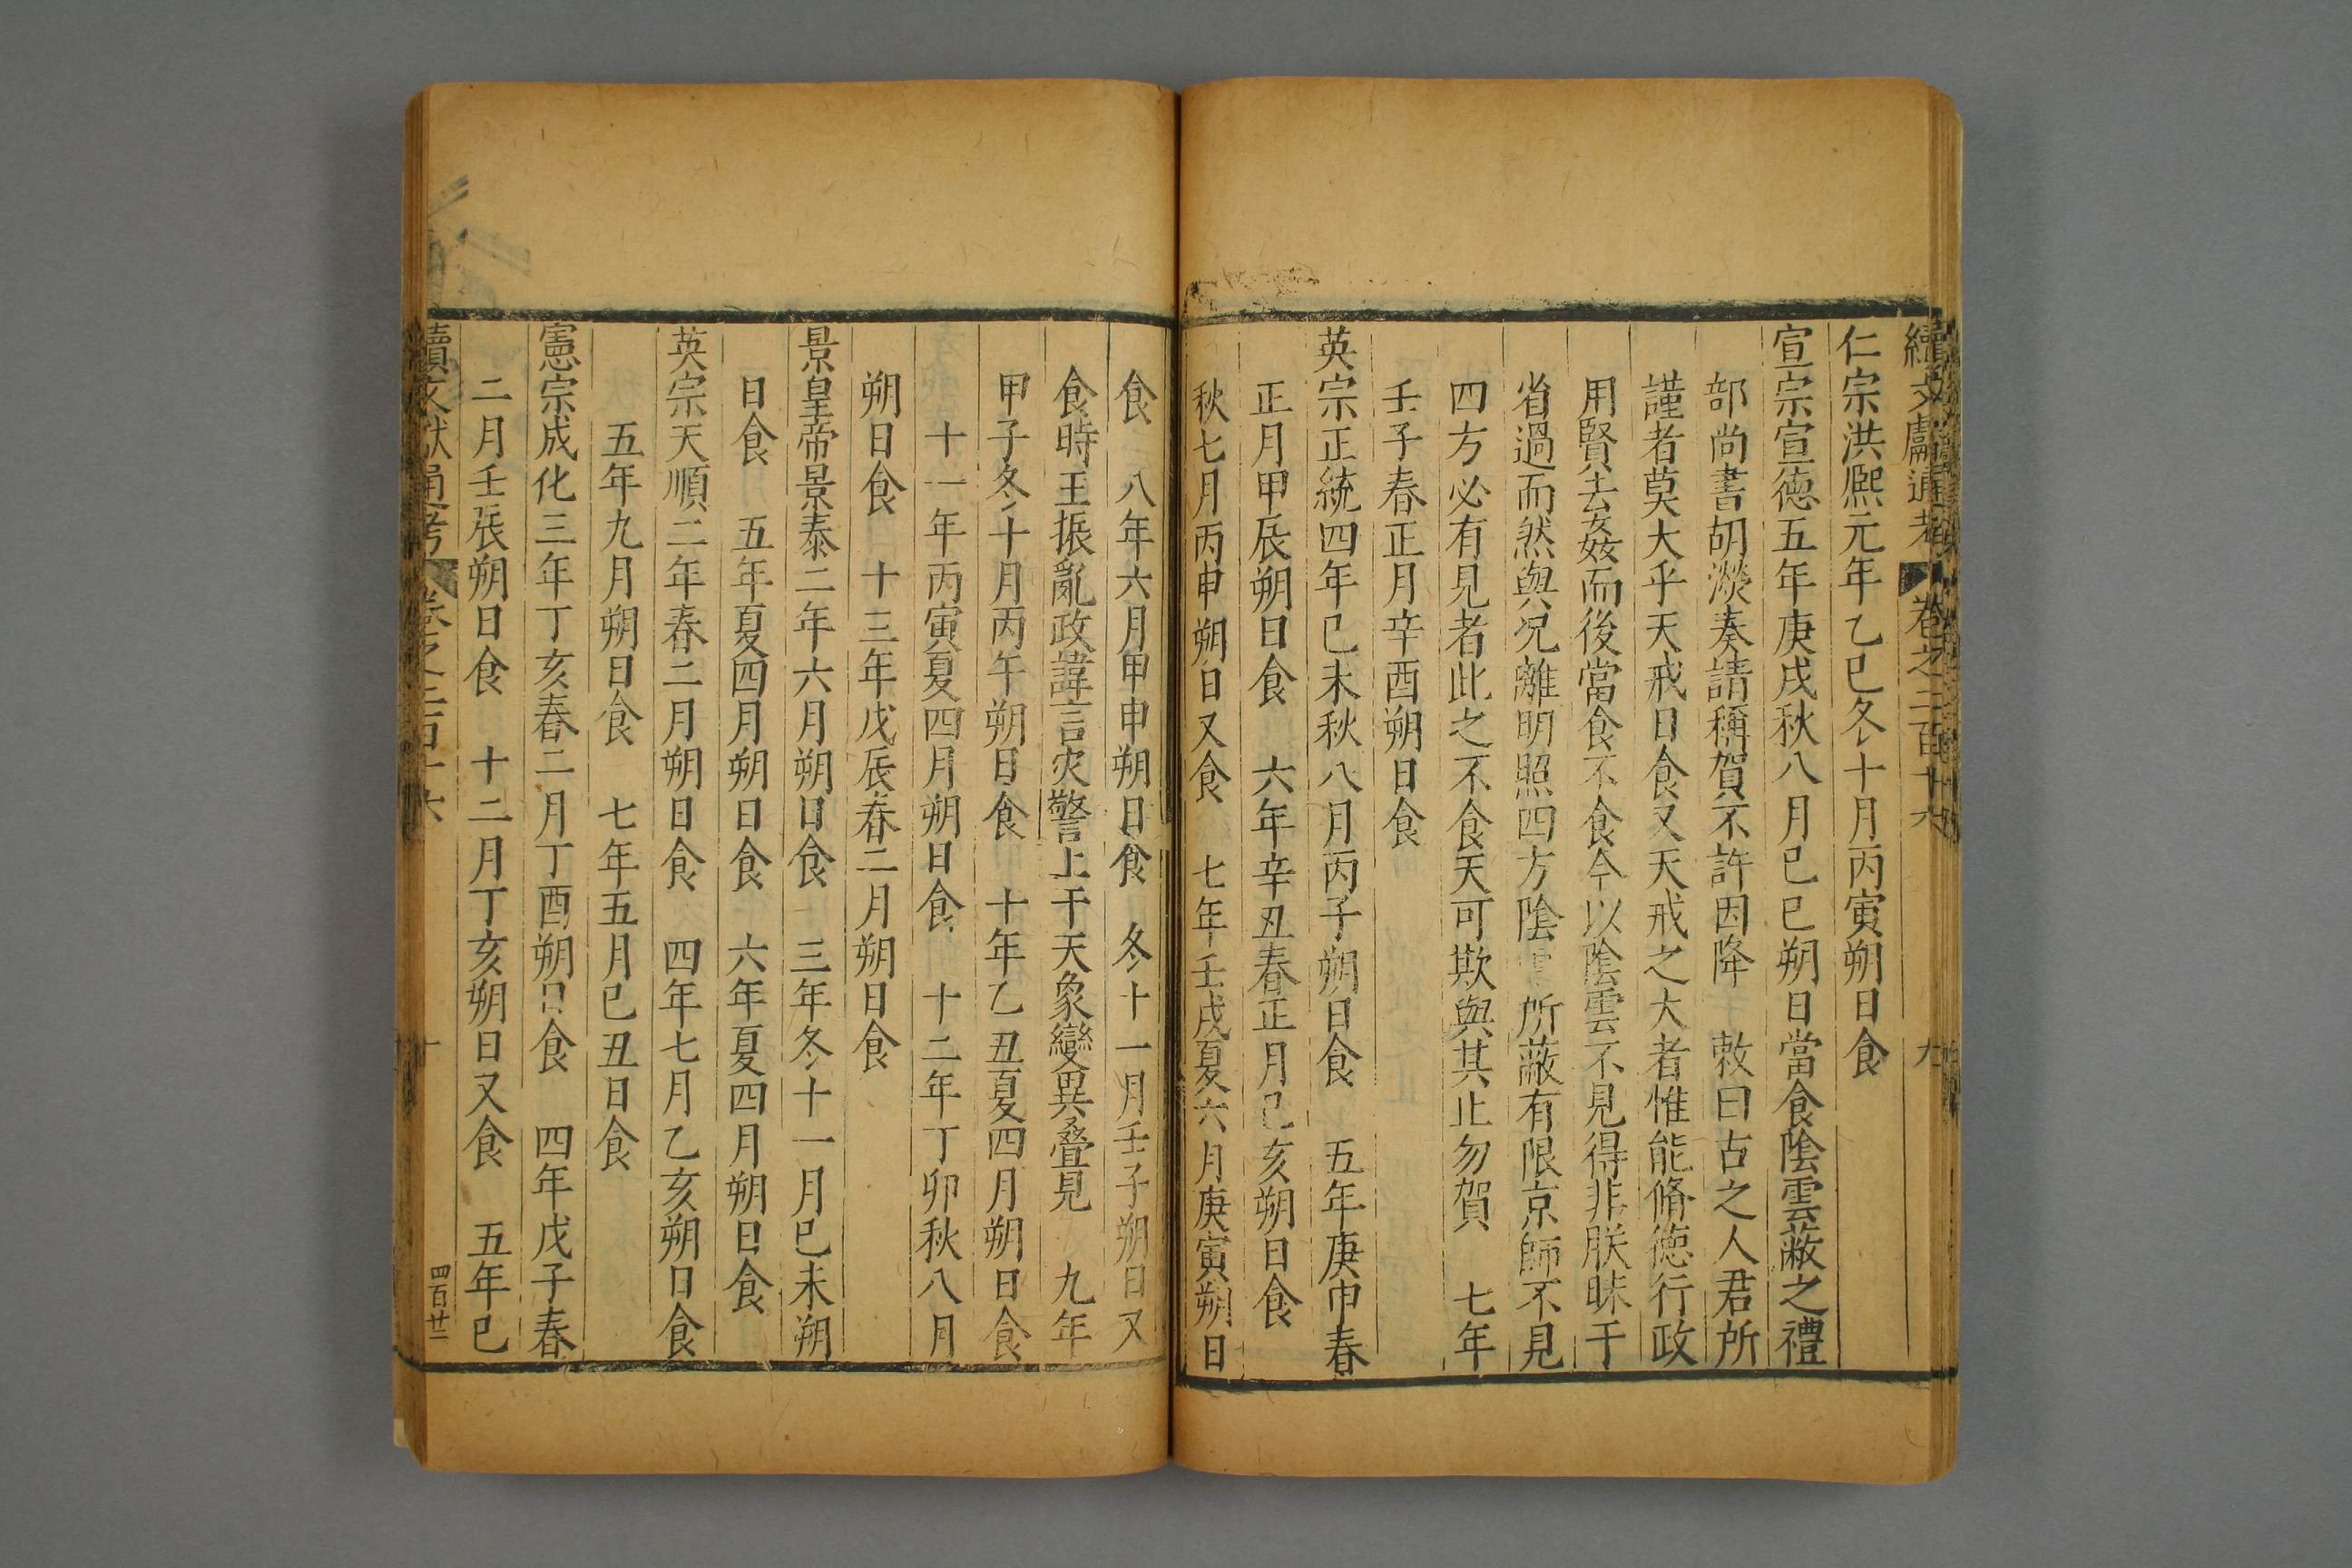 續文獻通考 卷之二百十六 九
仁宗洪熙元年乙巳冬十月丙寅朔日食
宣宗宣德五年庚戌秋八月己巳朔日當食陰雲蔽之禮
部尚書胡濙奏請稱賀不許因降 敕曰古之人君所
謹者莫大乎天戒日食又天戒之大者惟能脩德行政
用賢去姦而後當食不食今以陰雲不見得非朕昧于
省過而然與况離明照四方陰 所蔽有限京師不見
四方必有見者此之不食天可欺與其止勿賀 七年
壬子春正月辛酉朔日食
英宗正統四年己未秋八月丙子朔日食 五年庚申春
正月甲辰朔日食 六年辛丑春正月己亥朔日食
秋七月丙申朔日又食 七年壬戌夏六月庚寅朔日
食 八年六月甲申朔日食 冬十一月壬子朔日又
食時王振亂政諱言灾警上干天象變異疊見 九年
甲子冬十月丙午朔日食 十年乙丑夏四月朔日食
十一年丙寅夏四月朔日食 十二年丁卯秋八月
朔日食 十三年戊辰春二月朔日食
景皇帝景泰二年六月朔日食 三年冬十一月己未朔
日食 五年夏四月朔日食 六年夏四月朔日食
英宗天順二年春二月朔日食 四年七月乙亥朔日食
五年九月朔日食 七年五月己丑日食
憲宗成化三年丁亥春二月丁酉朔日食 四年戊子春
二月壬辰朔日食 十二月丁亥朔日又食 五年己
續文獻通考 卷之二百十六 十 四百廿二